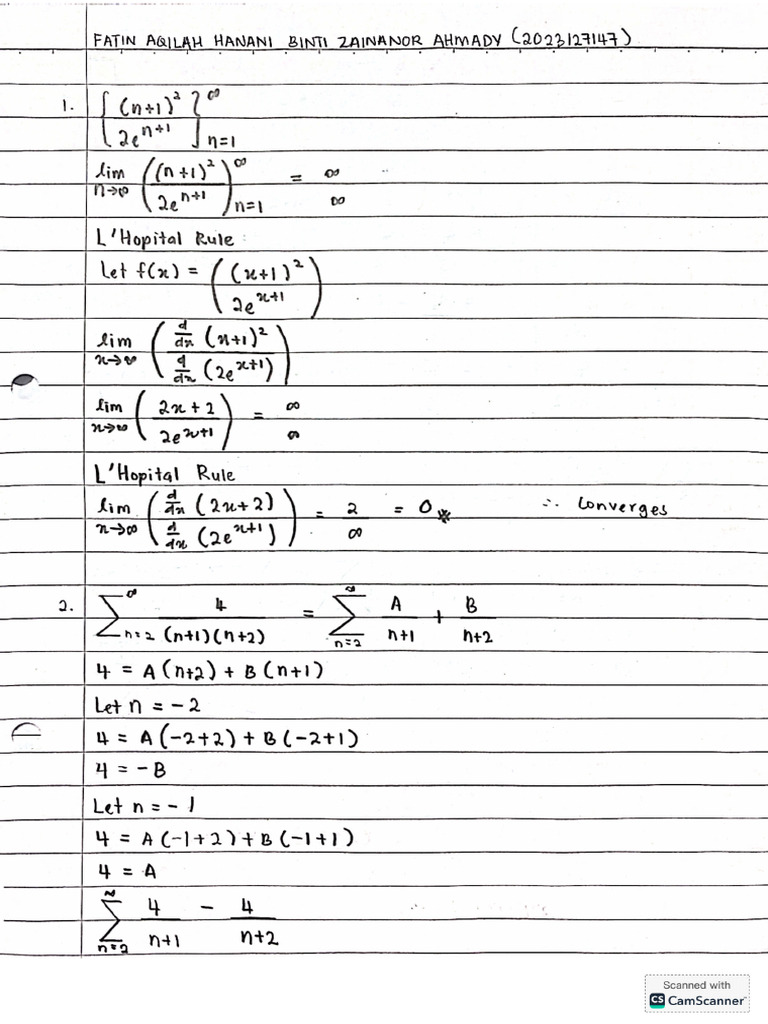 FATIN AQILAH HANANI BINTI ZAINANOR AHMADY (2023127147)
1. { (n+1)² / 2e^(n+1) }^∞ n=1
lim n→∞ ( (n+1)² / 2e^(n+1) )^∞ n=1 = ∞ / ∞
L'Hopital Rule :
Let f(x) = ( (x+1)² / 2e^(x+1) )
lim x→∞ ( d/dx (x+1)² / d/dx (2e^(x+1)) )
lim x→∞ ( 2x+2 / 2e^(x+1) ) = ∞ / ∞
L'Hopital Rule
lim x→∞ ( d/dx (2x+2) / d/dx (2e^(x+1)) ) = 2 / ∞ = 0 ∴ Converges
2. ∑^∞ n=2 4 / (n+1)(n+2) = ∑^∞ n=2 A / n+1 + B / n+2
4 = A(n+2) + B(n+1)
Let n = -2
4 = A(-2+2) + B(-2+1)
4 = -B
Let n = -1
4 = A(-1+2) + B(-1+1)
4 = A
∑^∞ n=2 4 / n+1 - 4 / n+2
Scanned with
CS CamScanner